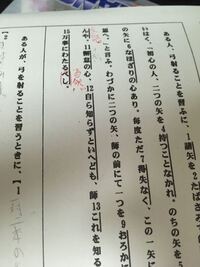 ある人、弓射ることを習ふに、1諸矢を2たばさ
いはく、「初心の人、二つの矢を4持つことなかれ。のちの矢を5
矢に6なほざりの心あり。毎度ただ7得失なく、この一矢
思へ。」と言ふ。わづかに二つの矢、師の前にて一つを9おろか
んや。11懈怠の心、12自ら知らずといへども、師13これを知る
15万事にわたるべし。
当然
ある人が、弓を射ることを習うときに、【1
【2